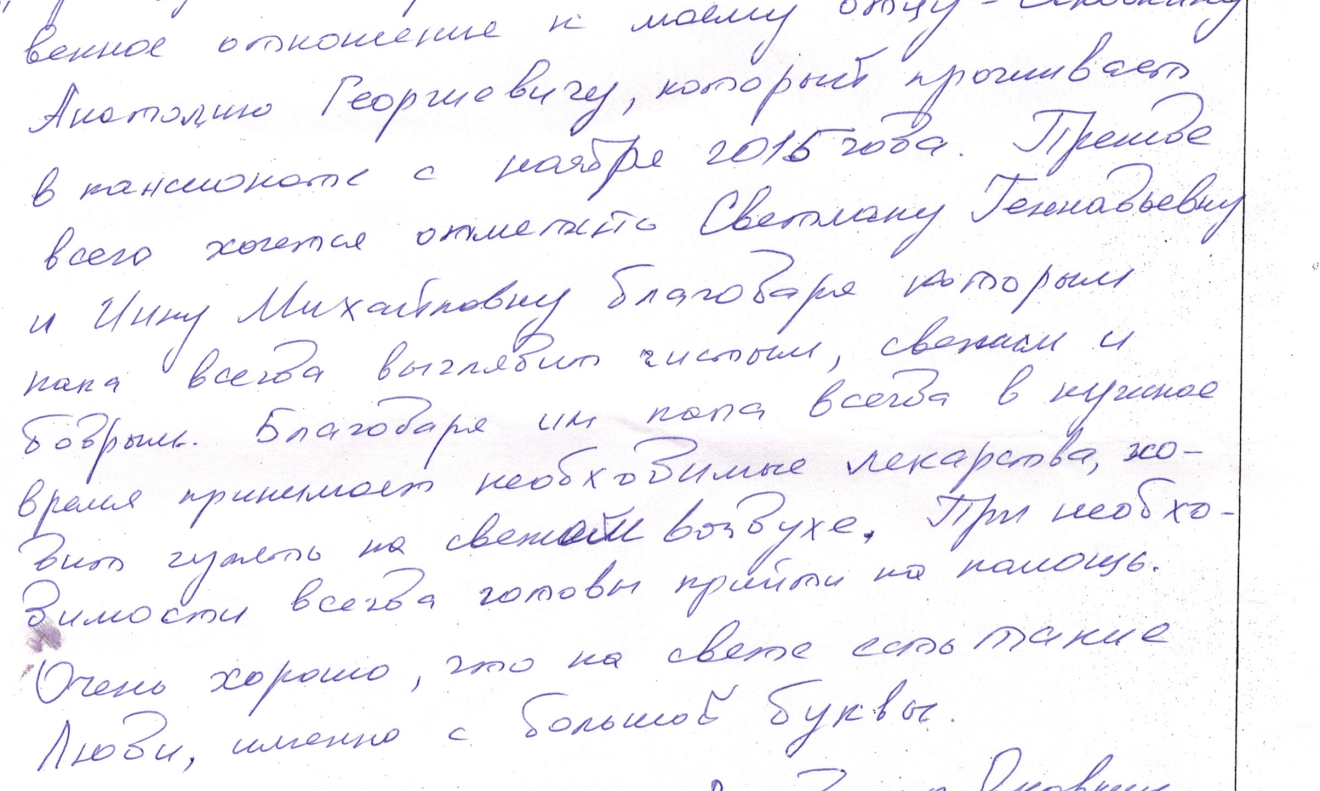 венное отношение к моему отцу -
Анатолию Георгиевичу, который проживает
в пансионате с ноября 2015 года. Прежде
всего хочется отметить Светлану Геннадьевну
и Инну Михайловну благодаря которым
папа всегда выглядит чистым, свежим и
бодрым. Благодаря им папа всегда в нужное
время принимает необходимые лекарства, хо-
дит гулять на свежем воздухе. При необхо-
димости всегда готовы прийти на помощь.
Очень хорошо, что на свете есть такие
Люди, именно с большой буквы.